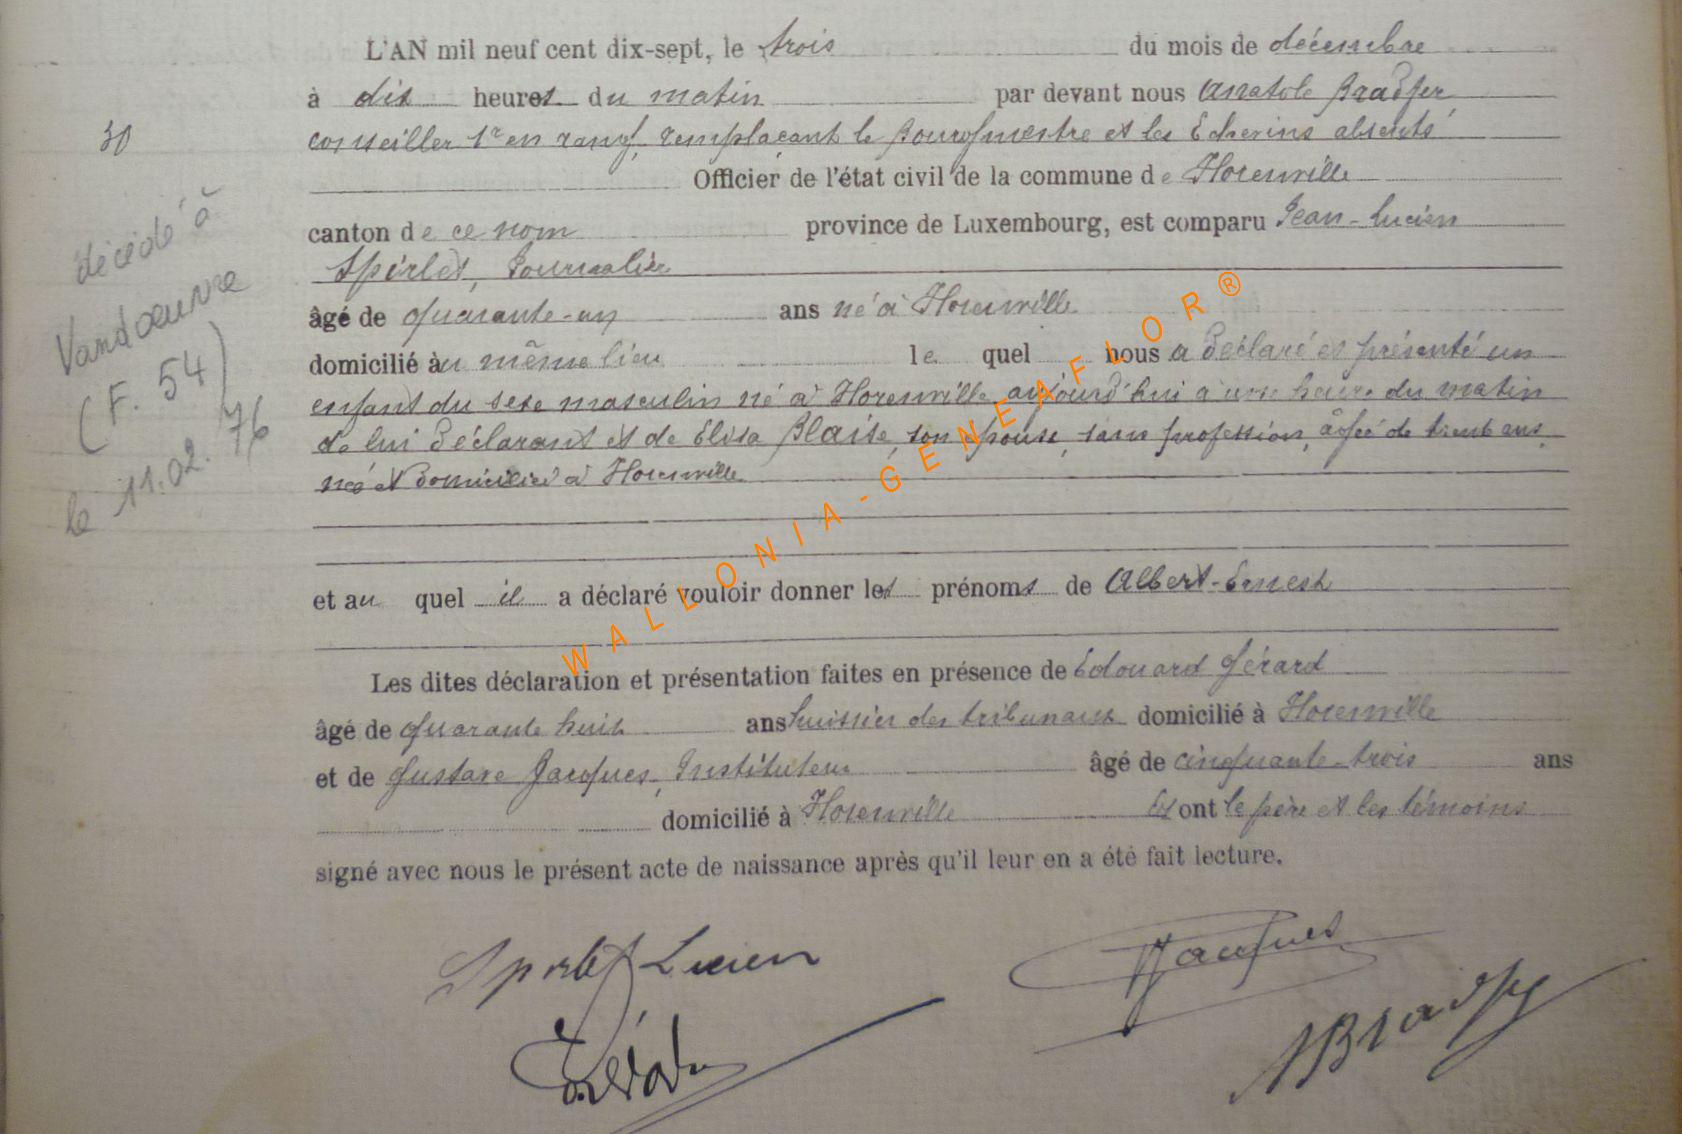 L'AN mil neuf cent dix-sept, le trois du mois de décembre
à dix heures du matin par devant nous Anatole Bradfer
30
conseiller 1r en rang, remplaçant le Bourgmestre et les Echevins absents
Officier de l'état civil de la commune de Florenville
canton de ce nom province de Luxembourg, est comparu Jean-Lucien
Spirlet, Journalier
âgé de quarante-un ans né à Florenville
domicilié au même lieu lequel nous a déclaré et présenté un
enfant du sexe masculin né à Florenville aujourd'hui à une heure du matin
de lui déclarant et de Elisa Blaise, son épouse, sans profession, âgée de trente ans,
née et domiciliée à Florenville
et auquel il a déclaré vouloir donner les prénoms de Albert-Ernest
Les dites déclaration et présentation faites en présence de Edouard Gérard
âgé de quarante huit ans huissier des tribunaux domicilié à Florenville
et de Gustave Jacques, Instituteur âgé de cinquante-trois ans
domicilié à Florenville Et ont le père et les témoins
signé avec nous le présent acte de naissance après qu'il leur en a été fait lecture.
décédé à
Vandœuvre
(F. 54)
le 11.02.76
Spirlet Lucien
GJacques
ABradfer
WALLONIA-GENEAFLOR®